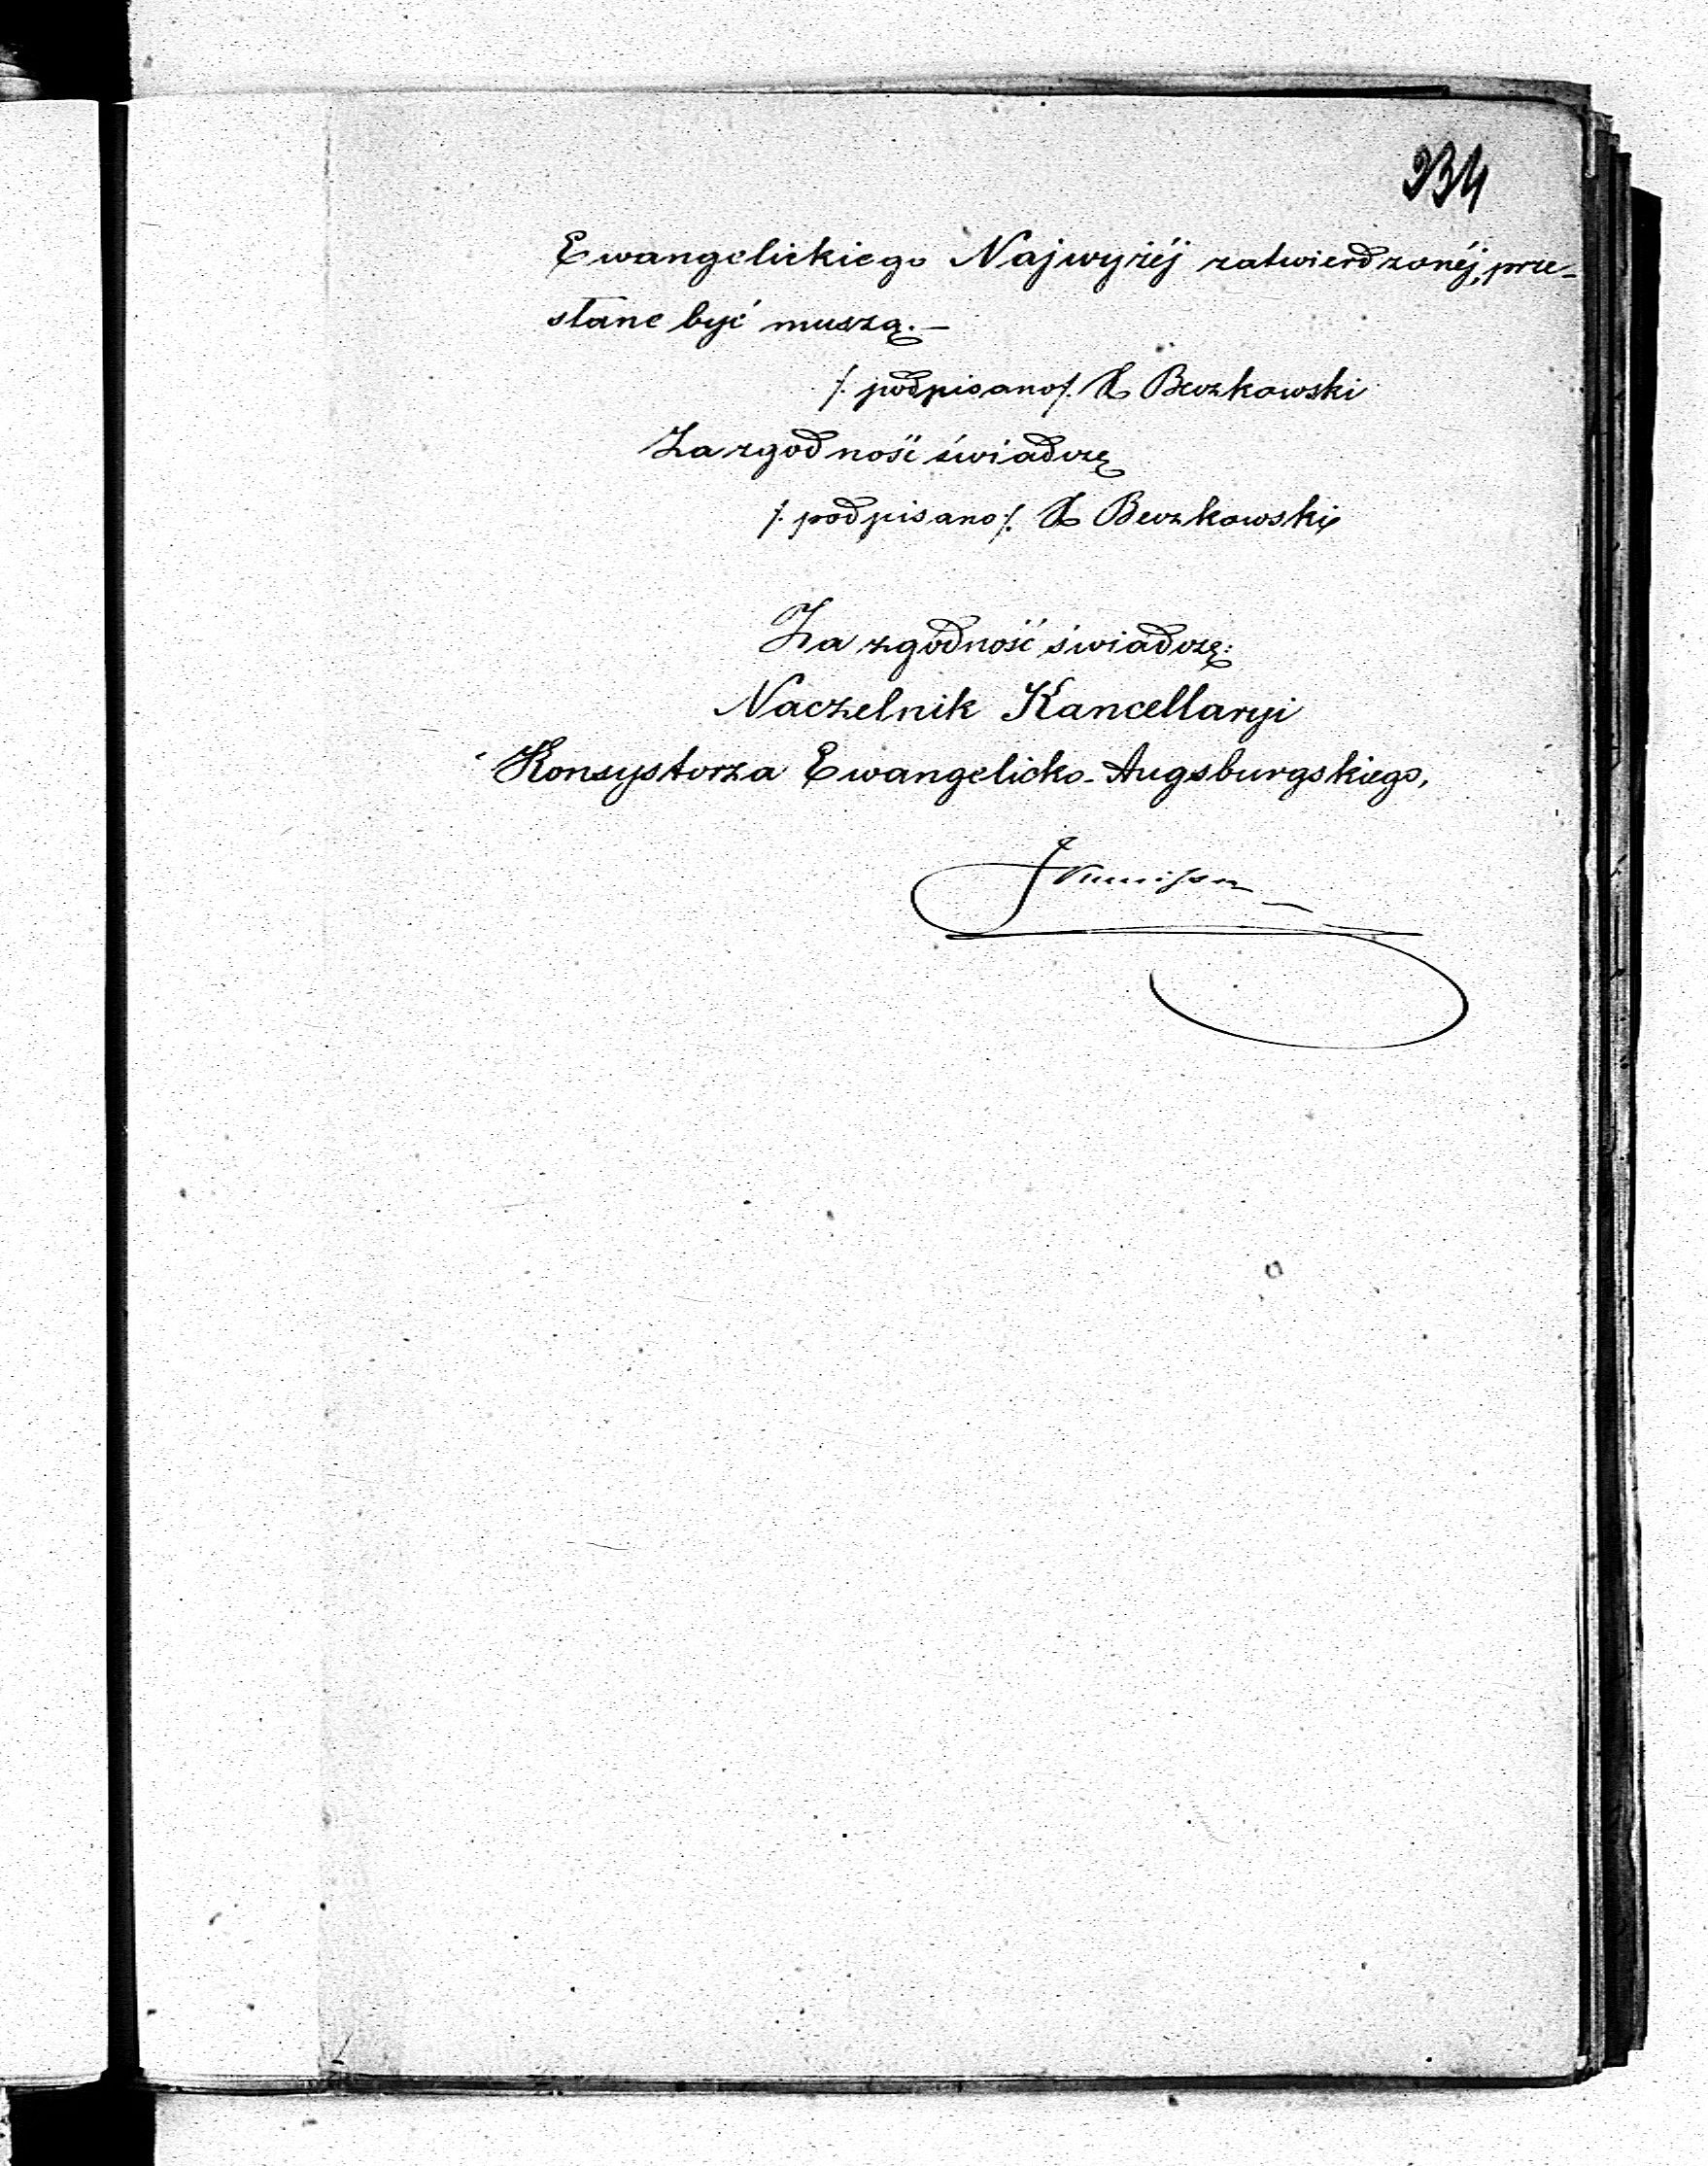 234
Ewangelickiego Najwyżéj zatwierdzonéj, prze-
słane być muszą. —
/: podpisano /:
Za zgodność świadczę
/: podpisano /:
Za zgodność świadczę:
Naczelnik Kancellaryi
Konsystorza Ewangelicko-Augsburgskiego,